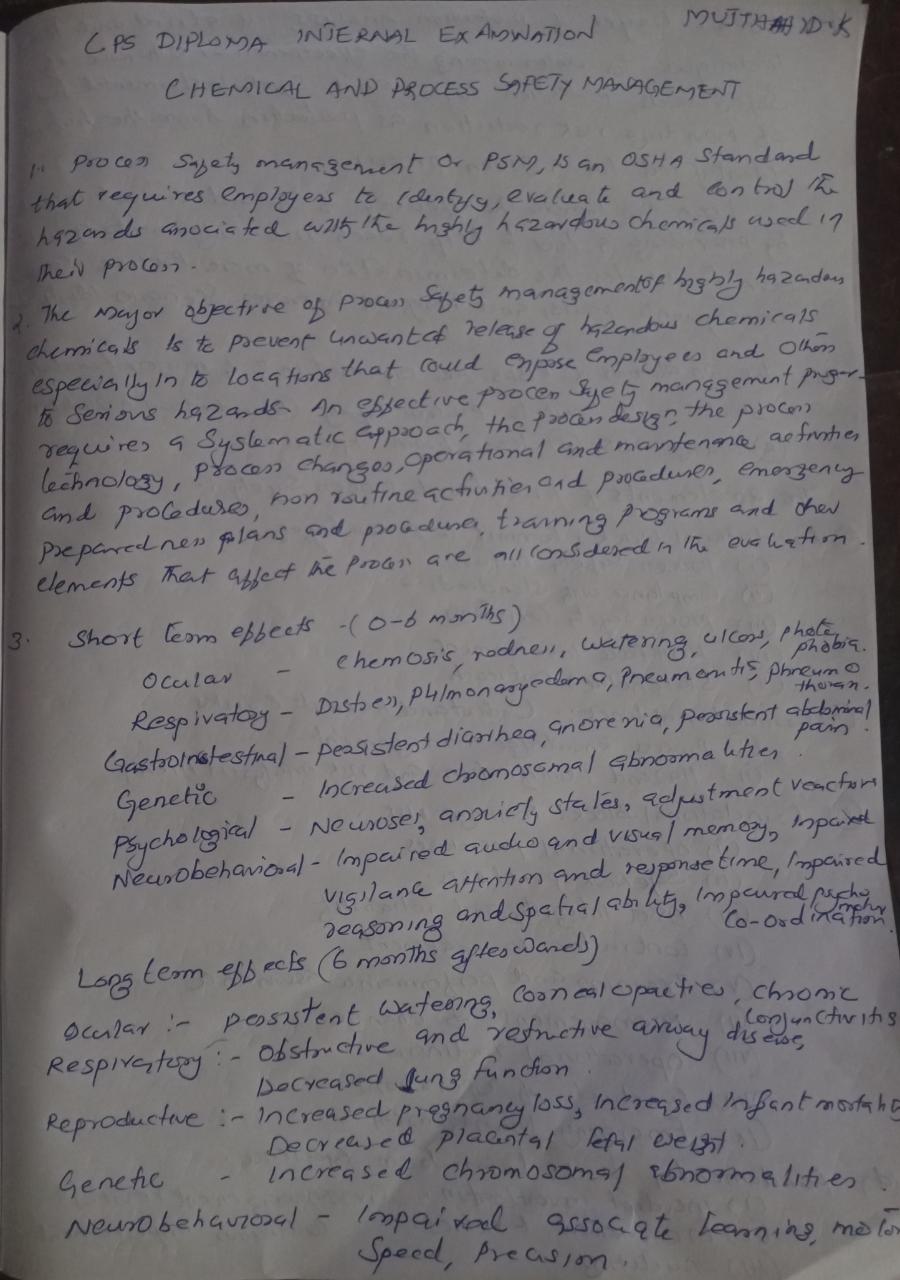 MUJTHAHID.K
CPS DIPLOMA INTERNAL EXAMINATION
CHEMICAL AND PROCESS SAFETY MANAGEMENT
1. Process Safety management Or PSM, is an OSHA Standard
that requires employers to identify, evaluate and control the
hazards associated with the highly hazardous chemicals used in
their process.
2. The major objective of process safety management of highly hazardous
chemicals is to prevent unwanted release of hazardous chemicals
especially in to locations that could expose employees and others
to serious hazards. An effective process safety management progr-
requires a systematic approach, the process design, the process
technology, process changes, operational and maintenance activities
and procedures, non routine activities and procedures, emergency
preparedness plans and procedures, training programs and other
elements that affect the process are all considered in the evaluation.
3. Short term effects - (0-6 months)
Ocular - chemosis, redness, watering, ulcers, photo
phobia.
Respiratory - Distress, pulmonary edema, pneumonitis, phneumo
thorax.
Gastrointestinal - persistent diarrhea, anorexia, persistent abdominal
pain.
Genetic - Increased chromosomal abnormalities.
Psychological - Neuroses, anxiety states, adjustment reactions
Neurobehavioral - Impaired audio and visual memory, Impaired
vigilance attention and response time, Impaired
reasoning and spatial ability, Impaired psycho
motor
co-ordination.
Long term effects (6 months afterwards)
Ocular :- persistent watering, corneal opacties, chronic
conjunctivitis
Respiratory :- Obstructive and restrictive airway disease,
Decreased lung function.
Reproductive :- Increased pregnancy loss, Increased infant mortality
Decreased placental fetal weight.
Genetic - Increased chromosomal abnormalities.
Neurobehavioral - Impaired associate learning, motor
Speed, Precision.